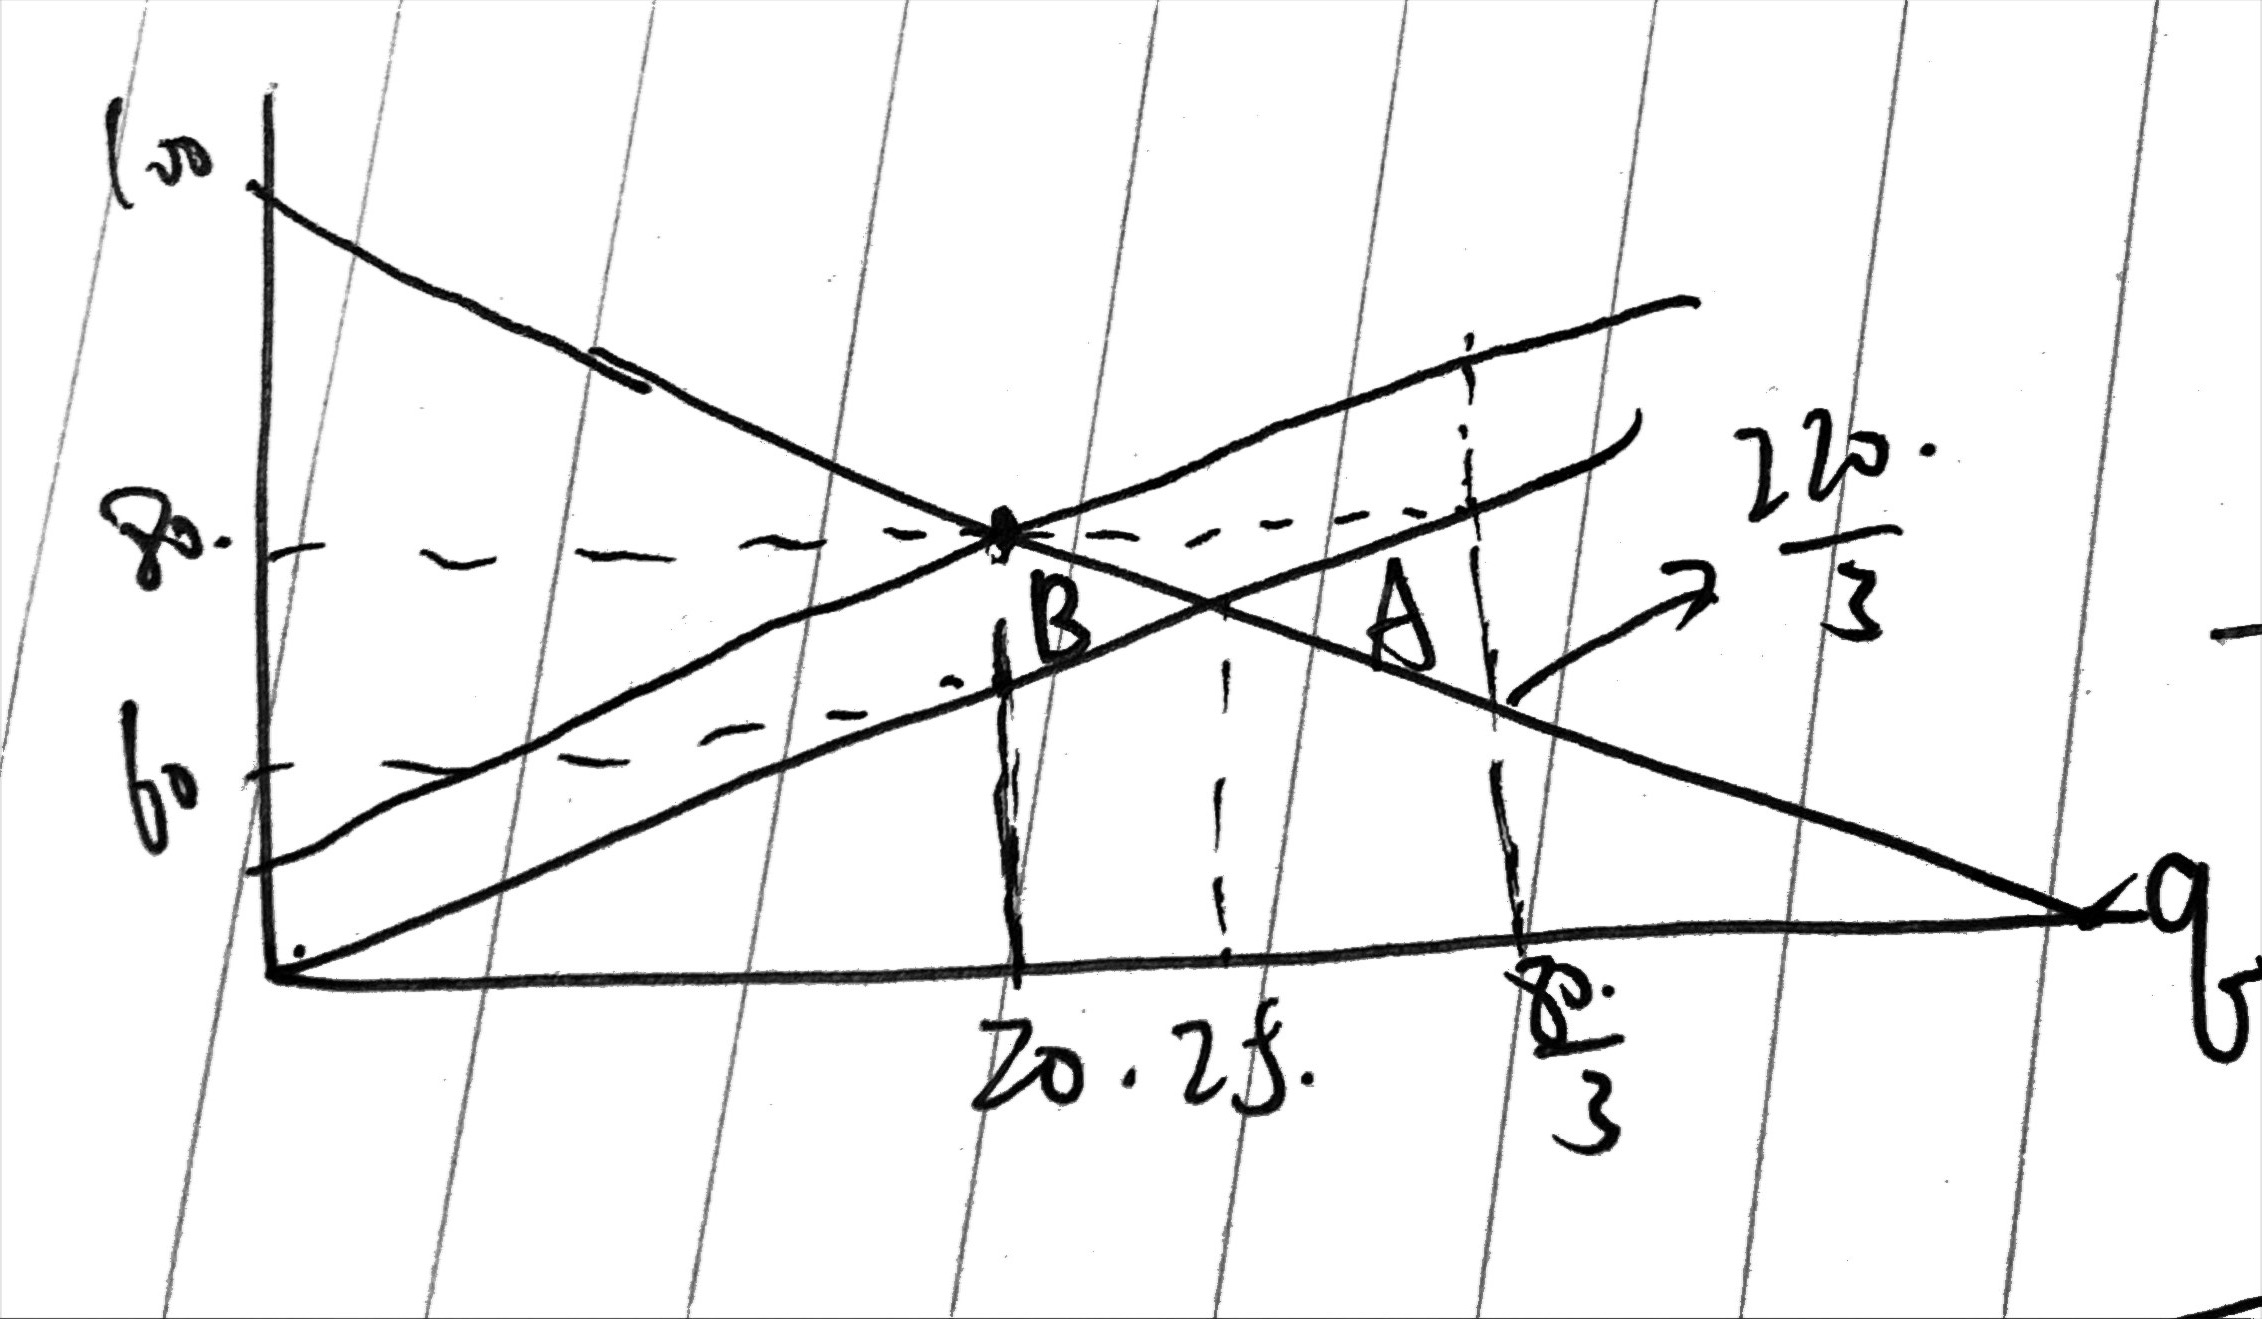 100
80.
60
B
A
220.
3
q
20. 25.
80.
3